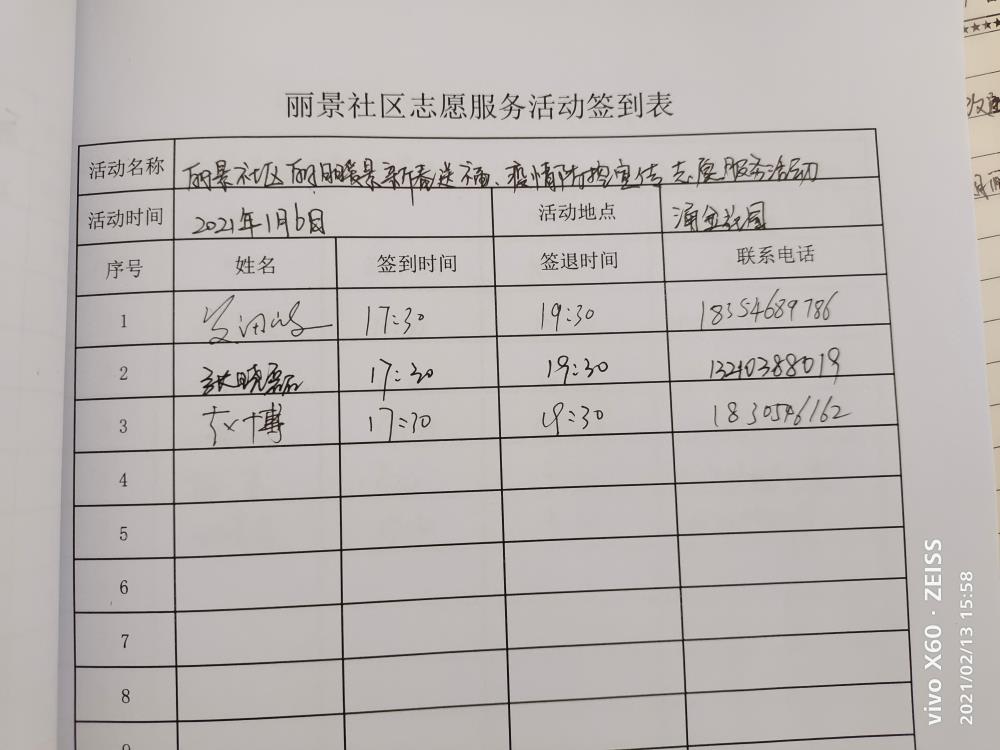 丽景社区志愿服务活动签到表
活动名称 丽景社区 丽阳暖景新春送福、疫情防控宣传志愿服务活动
活动时间 2021年1月6日 活动地点 涌金花园
序号 姓名 签到时间 签退时间 联系电话
1 17:30 19:30 18354689786
2 张晓磊 17:30 19:30 13210388019
3 赵博 17:30 19:30 18305461162
4
5
6
7
8
vivo X60 · ZEISS
2021/02/13 15:58